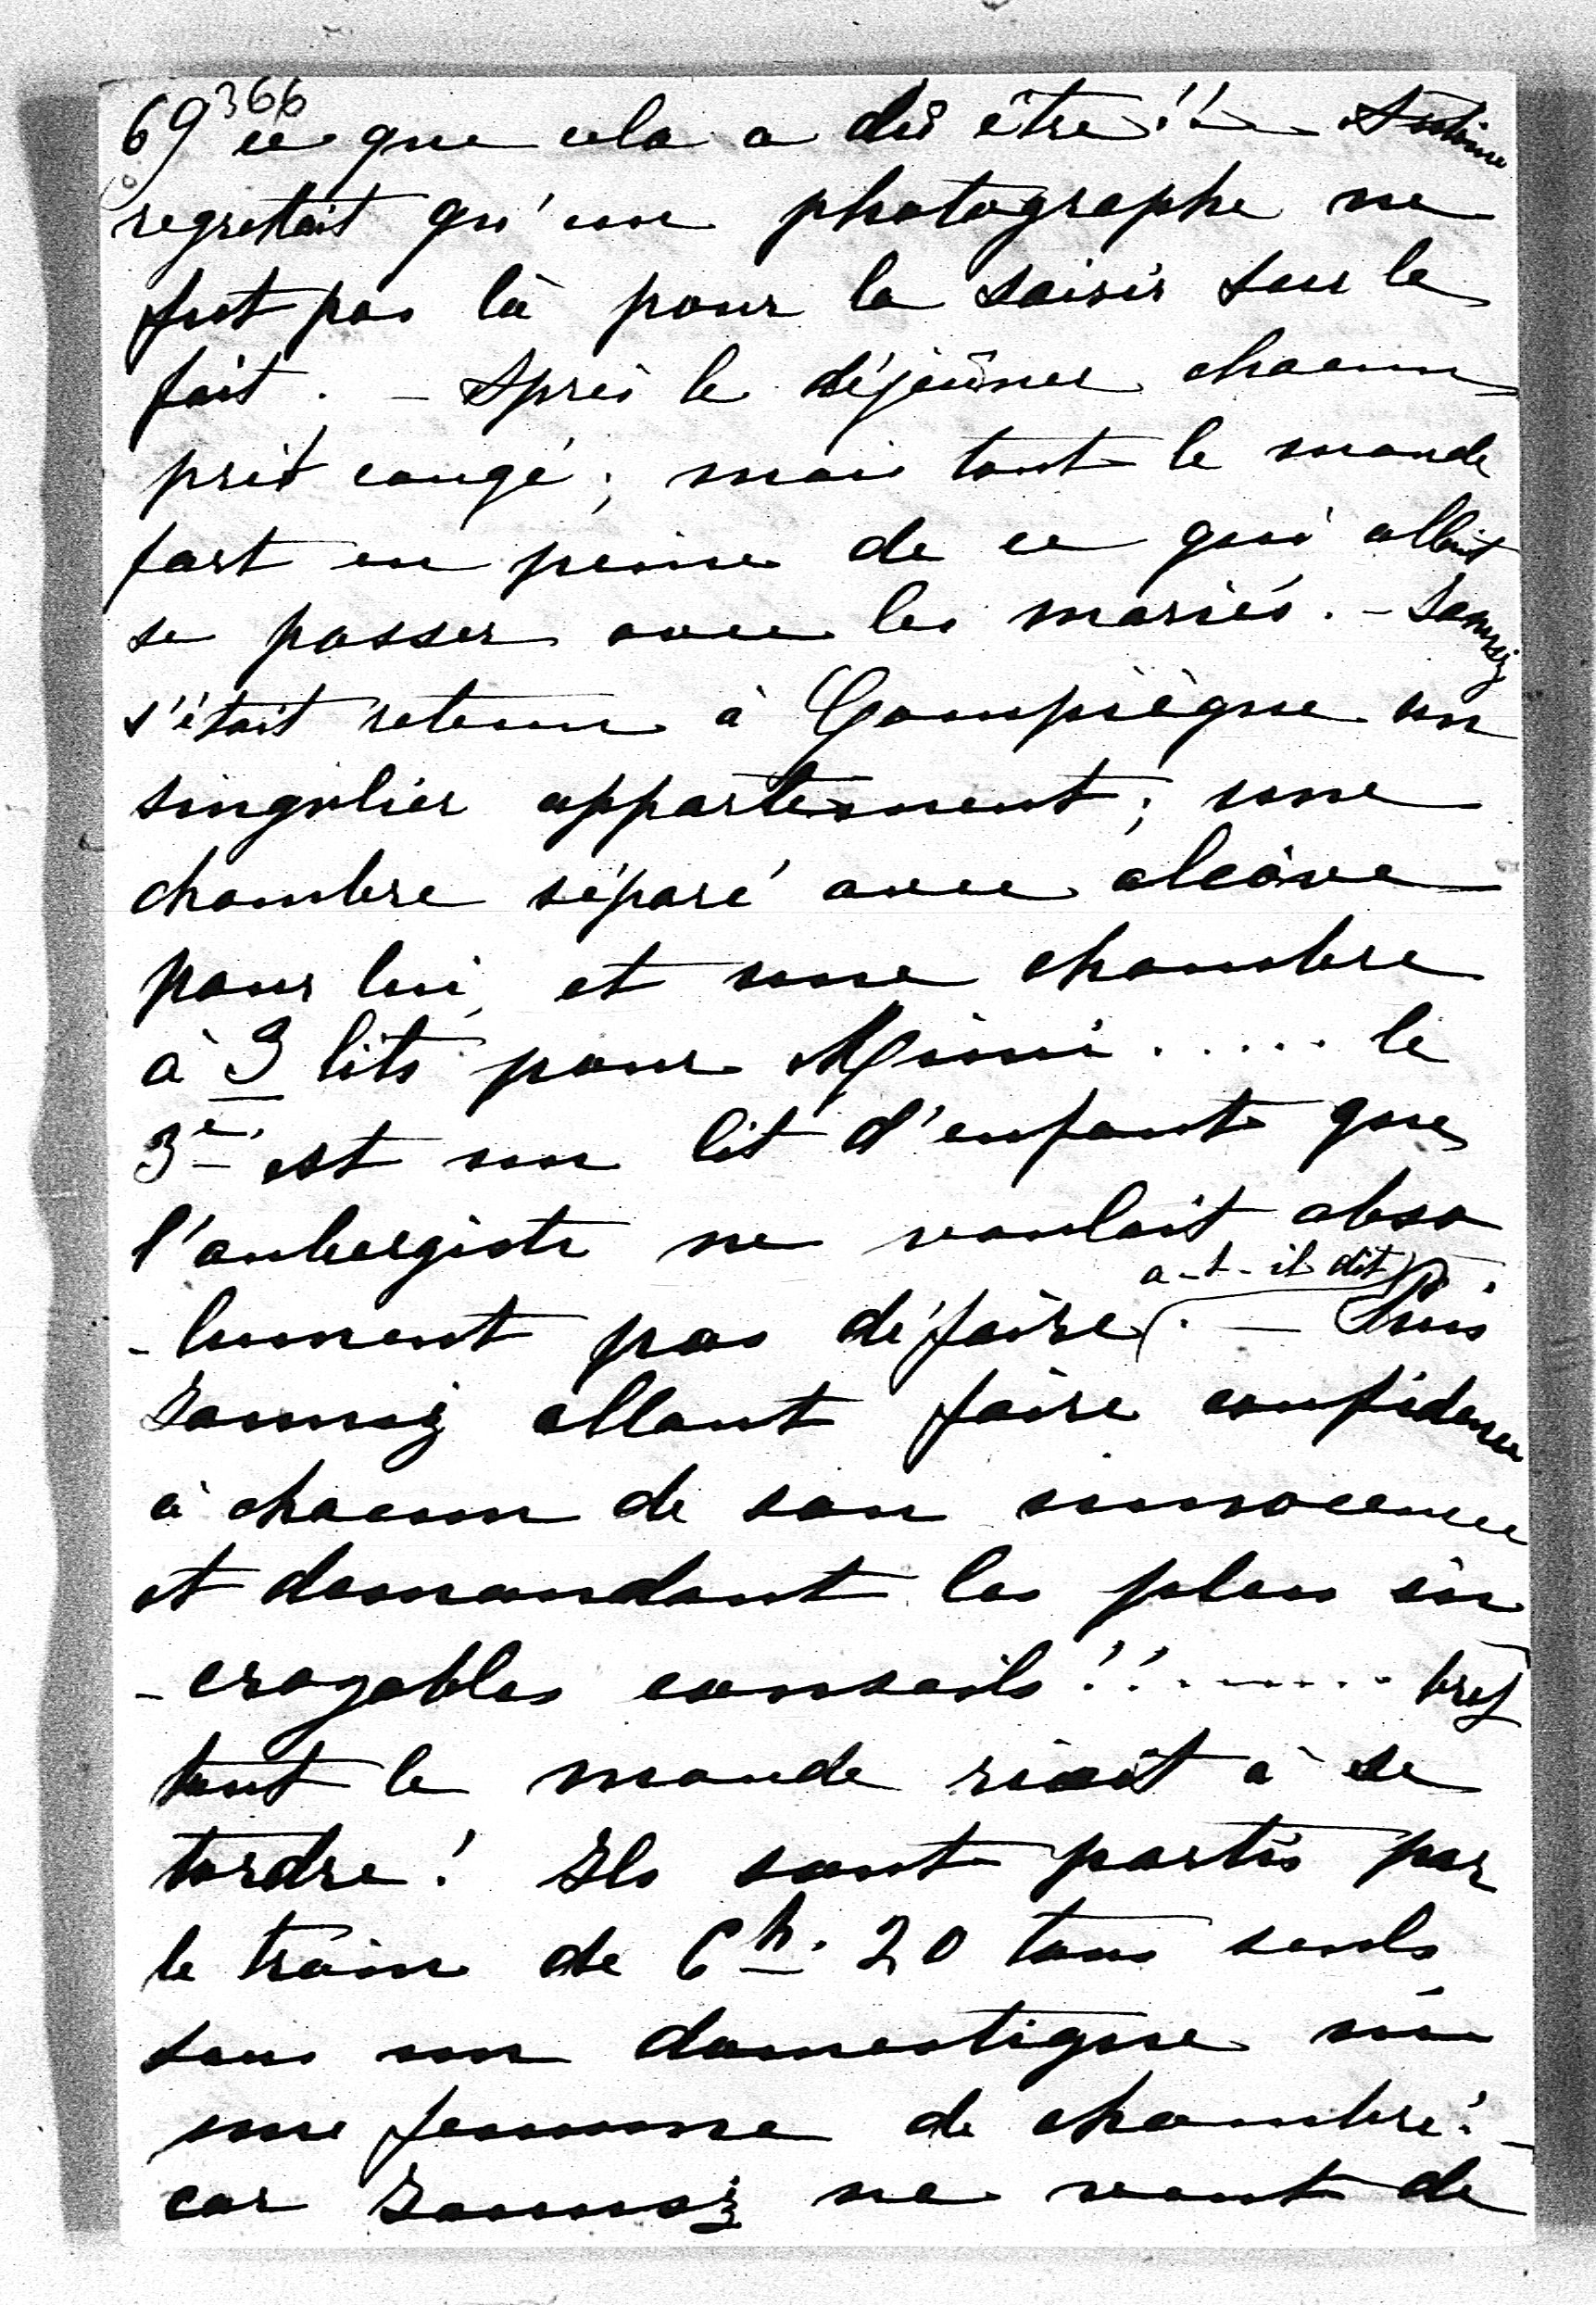 69 366
ce que cela a dû être!! — Antoine
regrettait qu'un photographe ne
fut pas là pour la saisir sur le
fait. — Après le déjeûner chacun
prit congé; mais tout le monde
fort en peine de ce qui allait
se passer avec les mariés. —
s'était retenu à Compiègne un
singulier appartement; une
chambre séparé avec alcôve
pour lui, et une chambre
à 3 lits pour Mimi ..... le
3e. est un lit d'enfant que
l'aubergiste ne voulait abso
a-t-il dit
-lument pas défaire. — Puis
allant faire confidence
à chacun de son innocence
et demandant les plus in
-croyables conseils!! ....... bref
tout le monde riait à se
tordre! Ils sont partis par
le train de 6h. 20 tous seuls
sans un domestique ni
une femme de chambre! —
car ne veut de